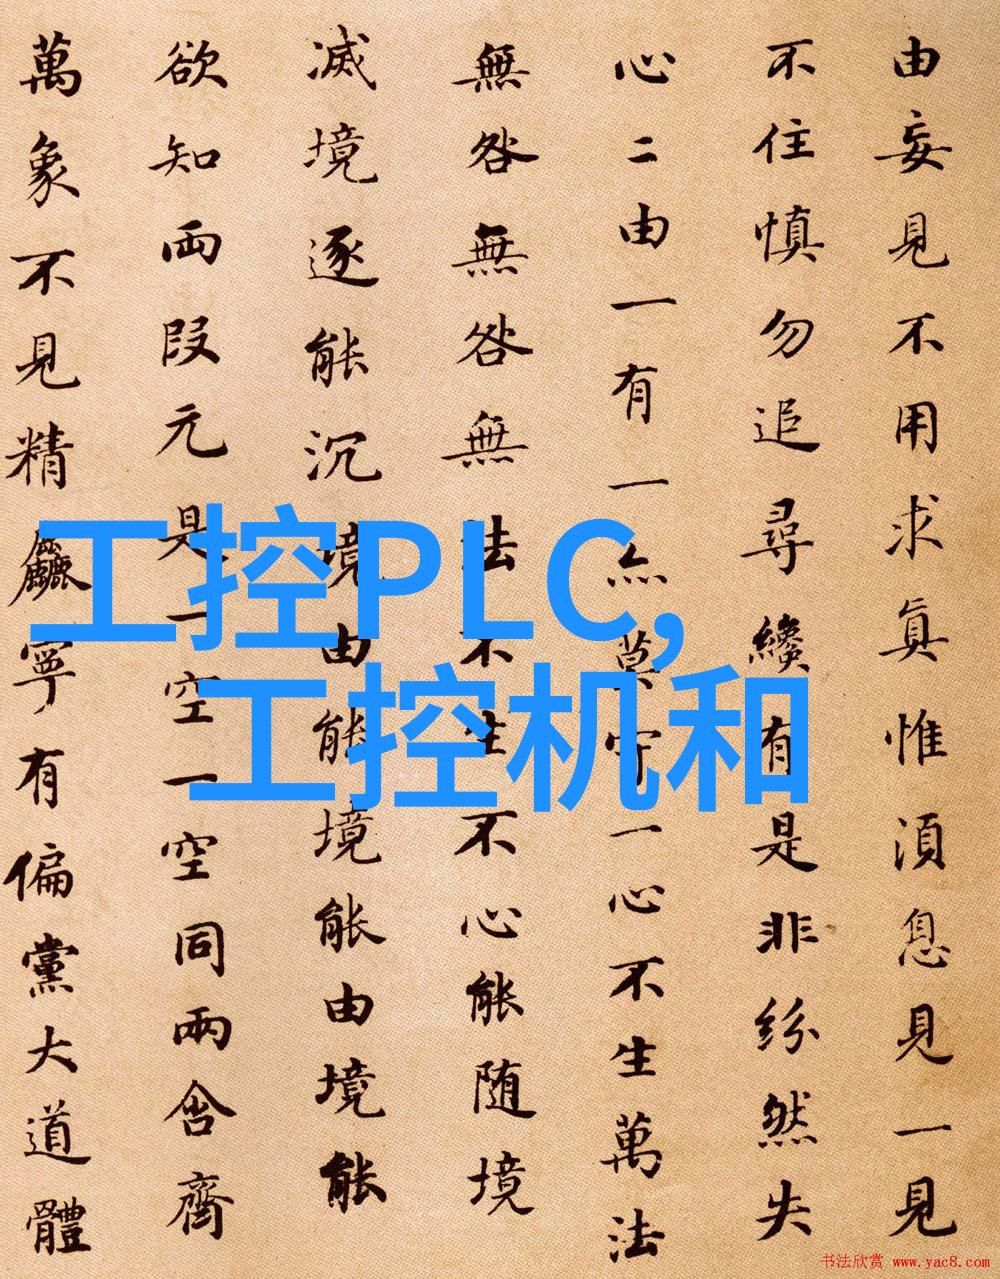 由妄見不用求真惟湏息見一見
不住慎勿追尋纔有是非紛然失
心二由一有一亦莫守一心不生萬法
無咎無咎無法不生不心能随境
滅境逐能沉境由能境能由境能
欲知兩段元是一空一空同兩含齊
萬象不見精麤寧有偏黨大道體
工控PLC,
工控机和
书法欣赏 www.yac8.com